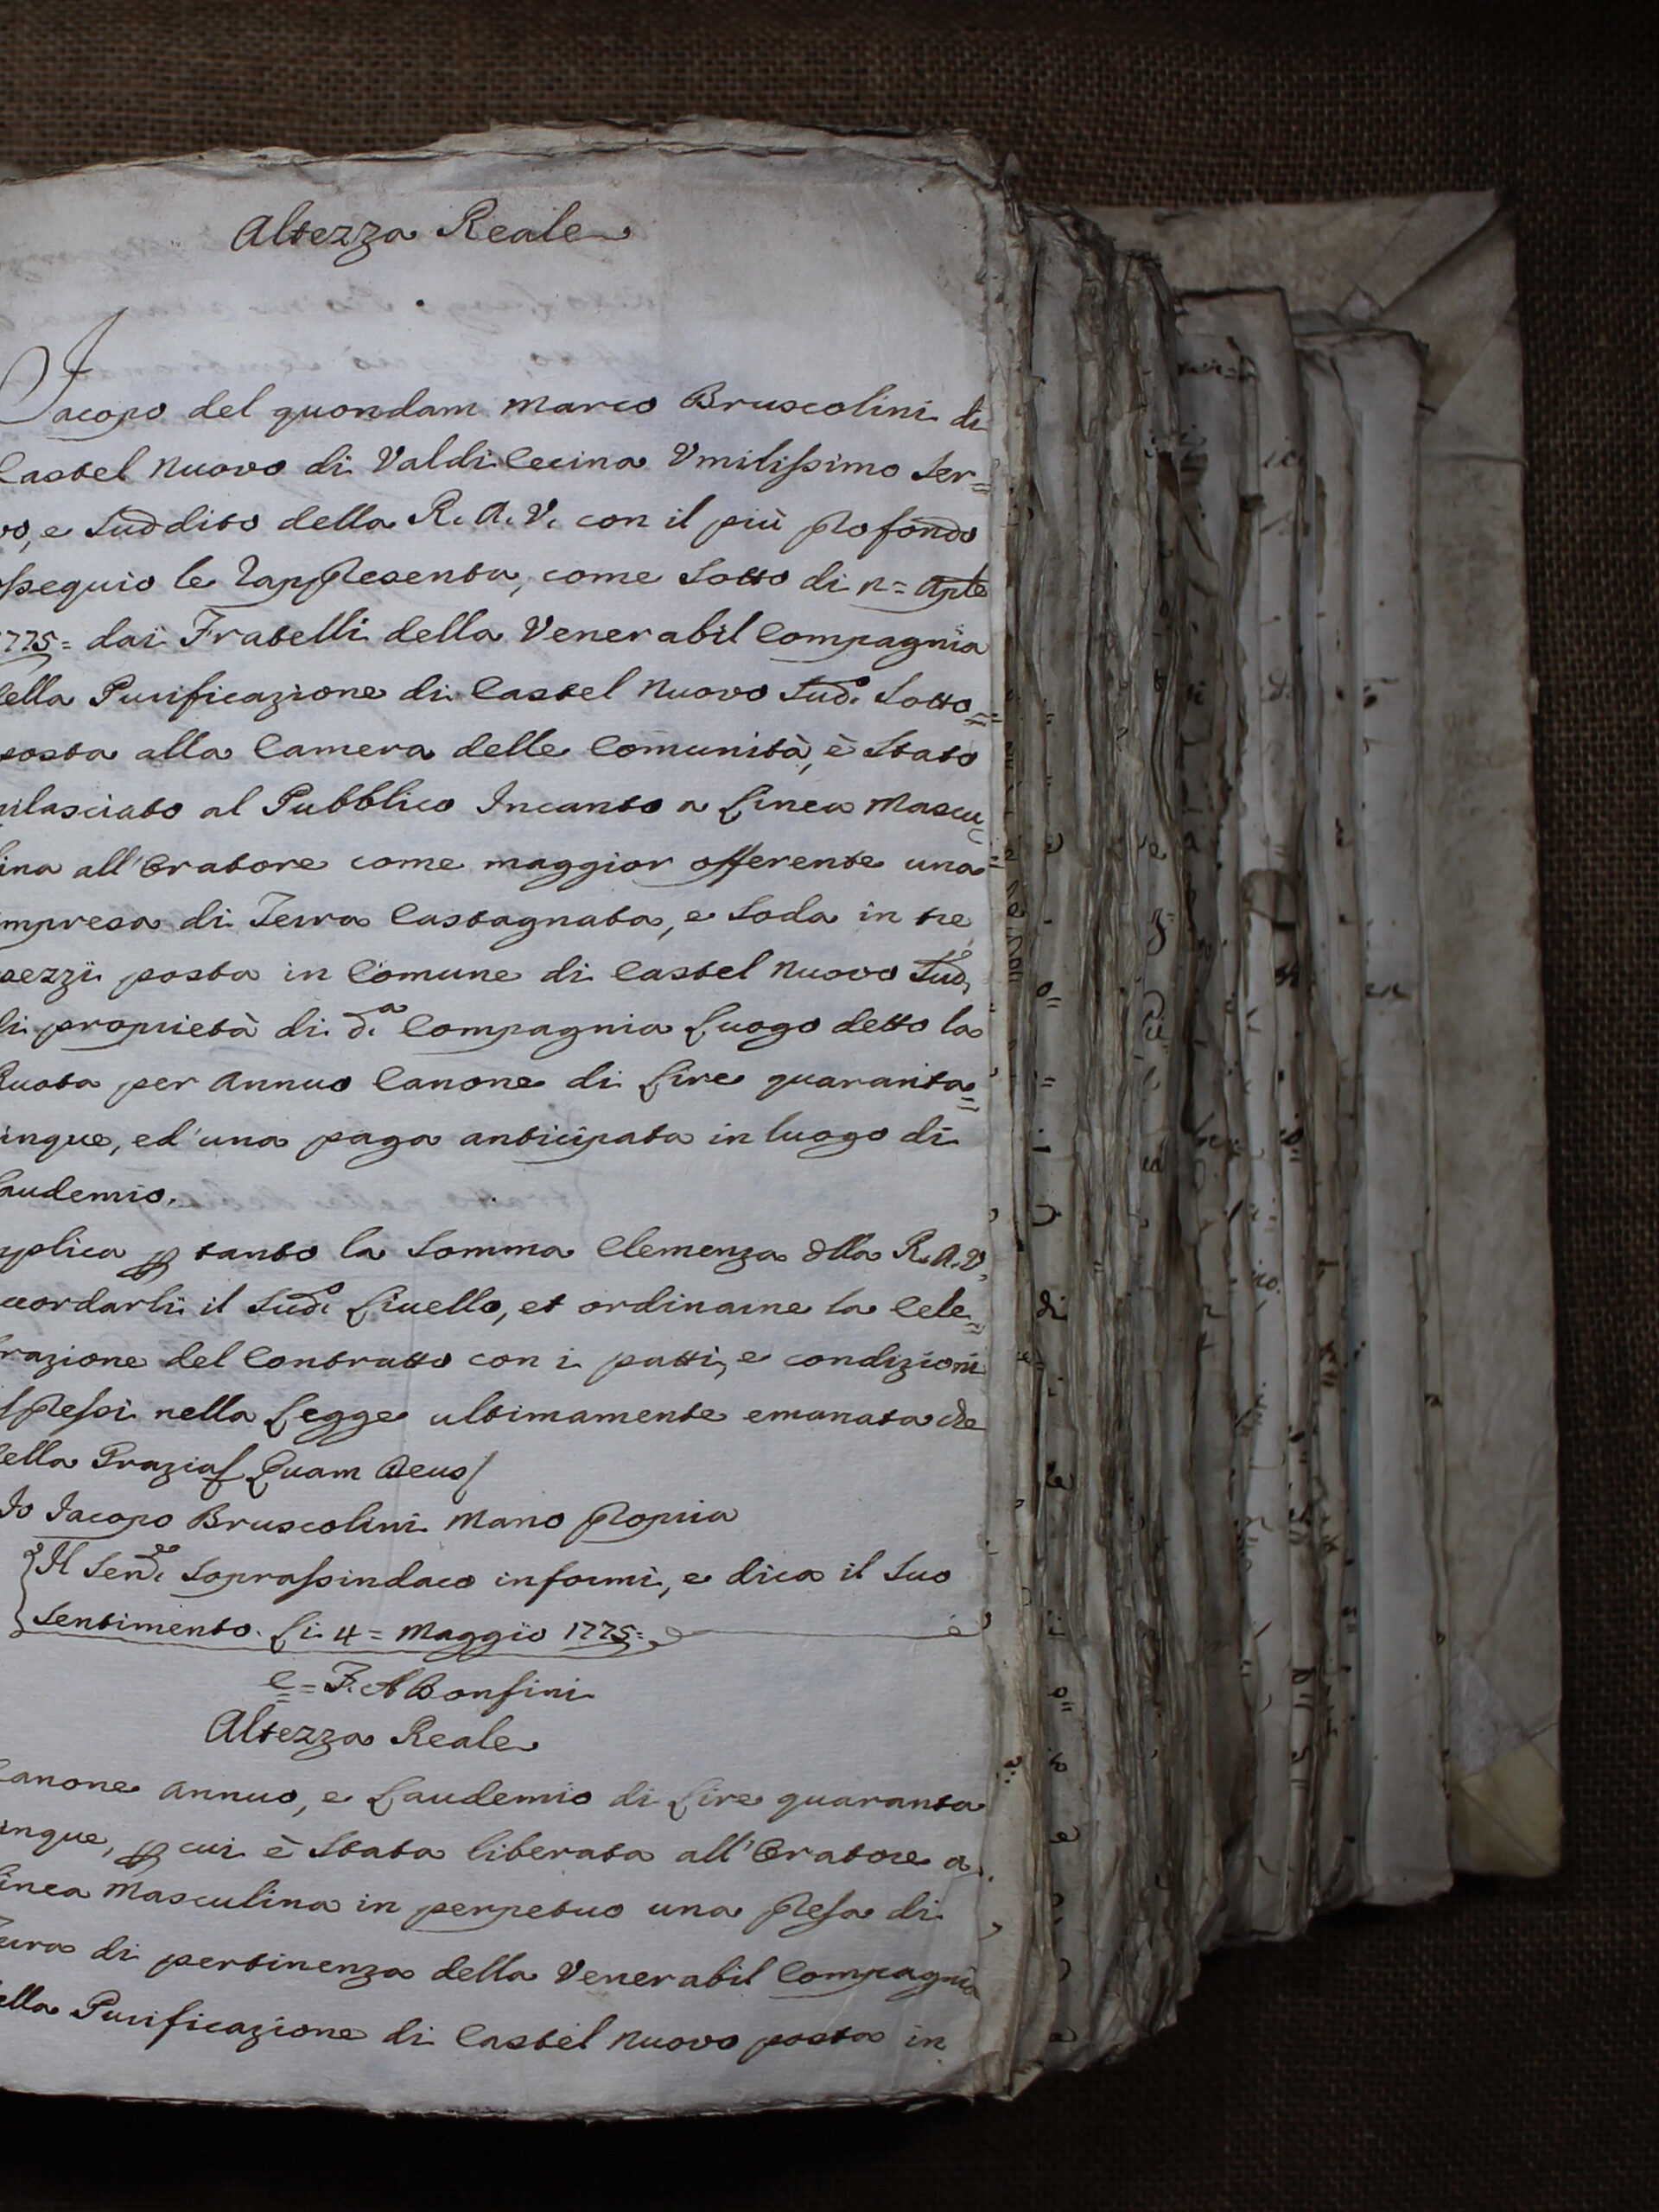 Altezza Reale
Jacopo del quondam Marco Bruscolini di
Castel Nuovo di Valdi Cecina Umilissimo Ser=
vo, e Suddito della R. A. V. con il più profondo
ssequio le rappresenta, come sotto di n= Aple
1775= dai Fratelli della Venerabil Compagnia
della Purificazione di Castel Nuovo Sud.o Sotto=
posta alla Camera delle Comunità, è stato
rilasciato al Pubblico Incanto a Linea Mascu=
lina all'Oratore come maggior offerente una
impresa di Terra Castagnata, e Soda in tre
pezzi posta in Comune di Castel Nuovo Sud.o
di proprietà di d.a Compagnia Luogo detto la
Quota per Annuo Canone di Lire quaranta=
inque, ed'una paga anticipata in luogo di
Laudemio.
pplica p tanto la Somma Clemenza dlla R. A. V.
ccordarli il Sud.o Livello, et ordinarne la Cele=
razione del Contratto con i patti, e condizioni
spressi nella Legge ultimamente emanata che
della Grazia/ Quam Deus/
Io Jacopo Bruscolini Mano propria
Il Sen.re Soprassindaco informi, e dica il Suo
Sentimento. Li 4= Maggio 1775=
= F. A Bonfini
Altezza Reale
Canone Annuo, e Laudemio di Lire quaranta
inque, p cui è Stata liberata all'Oratore a
Linea Masculina in perpetuo una presa di
Terra di pertinenza della Venerabil Compagnia
della Purificazione di Castel Nuovo posta in